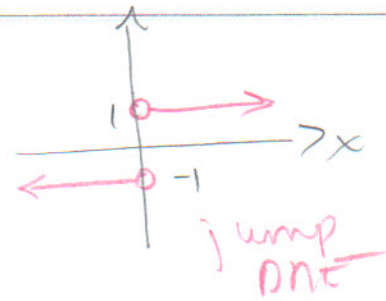 1
x
-1
jump
DNE